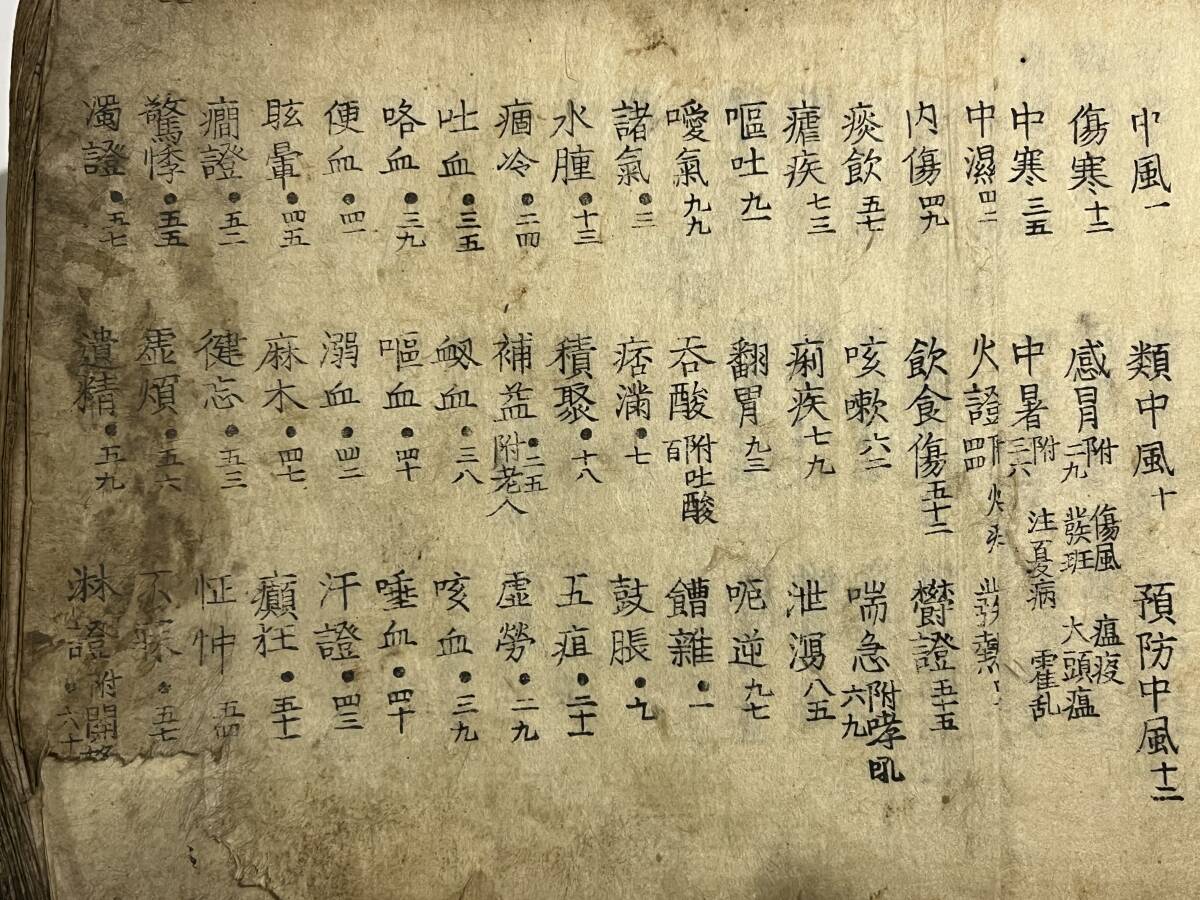 中風一 類中風十 預防中風十二
傷寒十二 感冒附二九 傷風 發班 瘟疫 大頭瘟
中寒三五 中暑附三六 注夏病 霍乱
中濕四二 火證附四四 發熱
内傷四九 飲食傷五十二 鬱證五十五
痰飲五七 咳嗽六二 喘急附哮吼六九
瘧疾七三 痢疾七九 泄瀉八五
嘔吐九一 翻胃九三 呃逆九七
噯氣九九 吞酸附吐酸百 嘈雜•一
諸氣•三 痞滿•七 鼓脹•九
水腫•十三 積聚•十八 五疸•二十
痼冷•二四 補益•二五附老人 虚勞•二九
吐血•三五 衂血•三八 咳血•三九
咯血•三九 嘔血•四十 唾血•四十
便血•四一 溺血•四二 汗證•四三
眩暈•四五 麻木•四七 癲狂•五十
癎證•五二 健忘•五三 怔忡 五四
驚悸•五五 虚煩•五六 不寐•五七
濁證•五七 遺精•五九 淋證•附關格六十